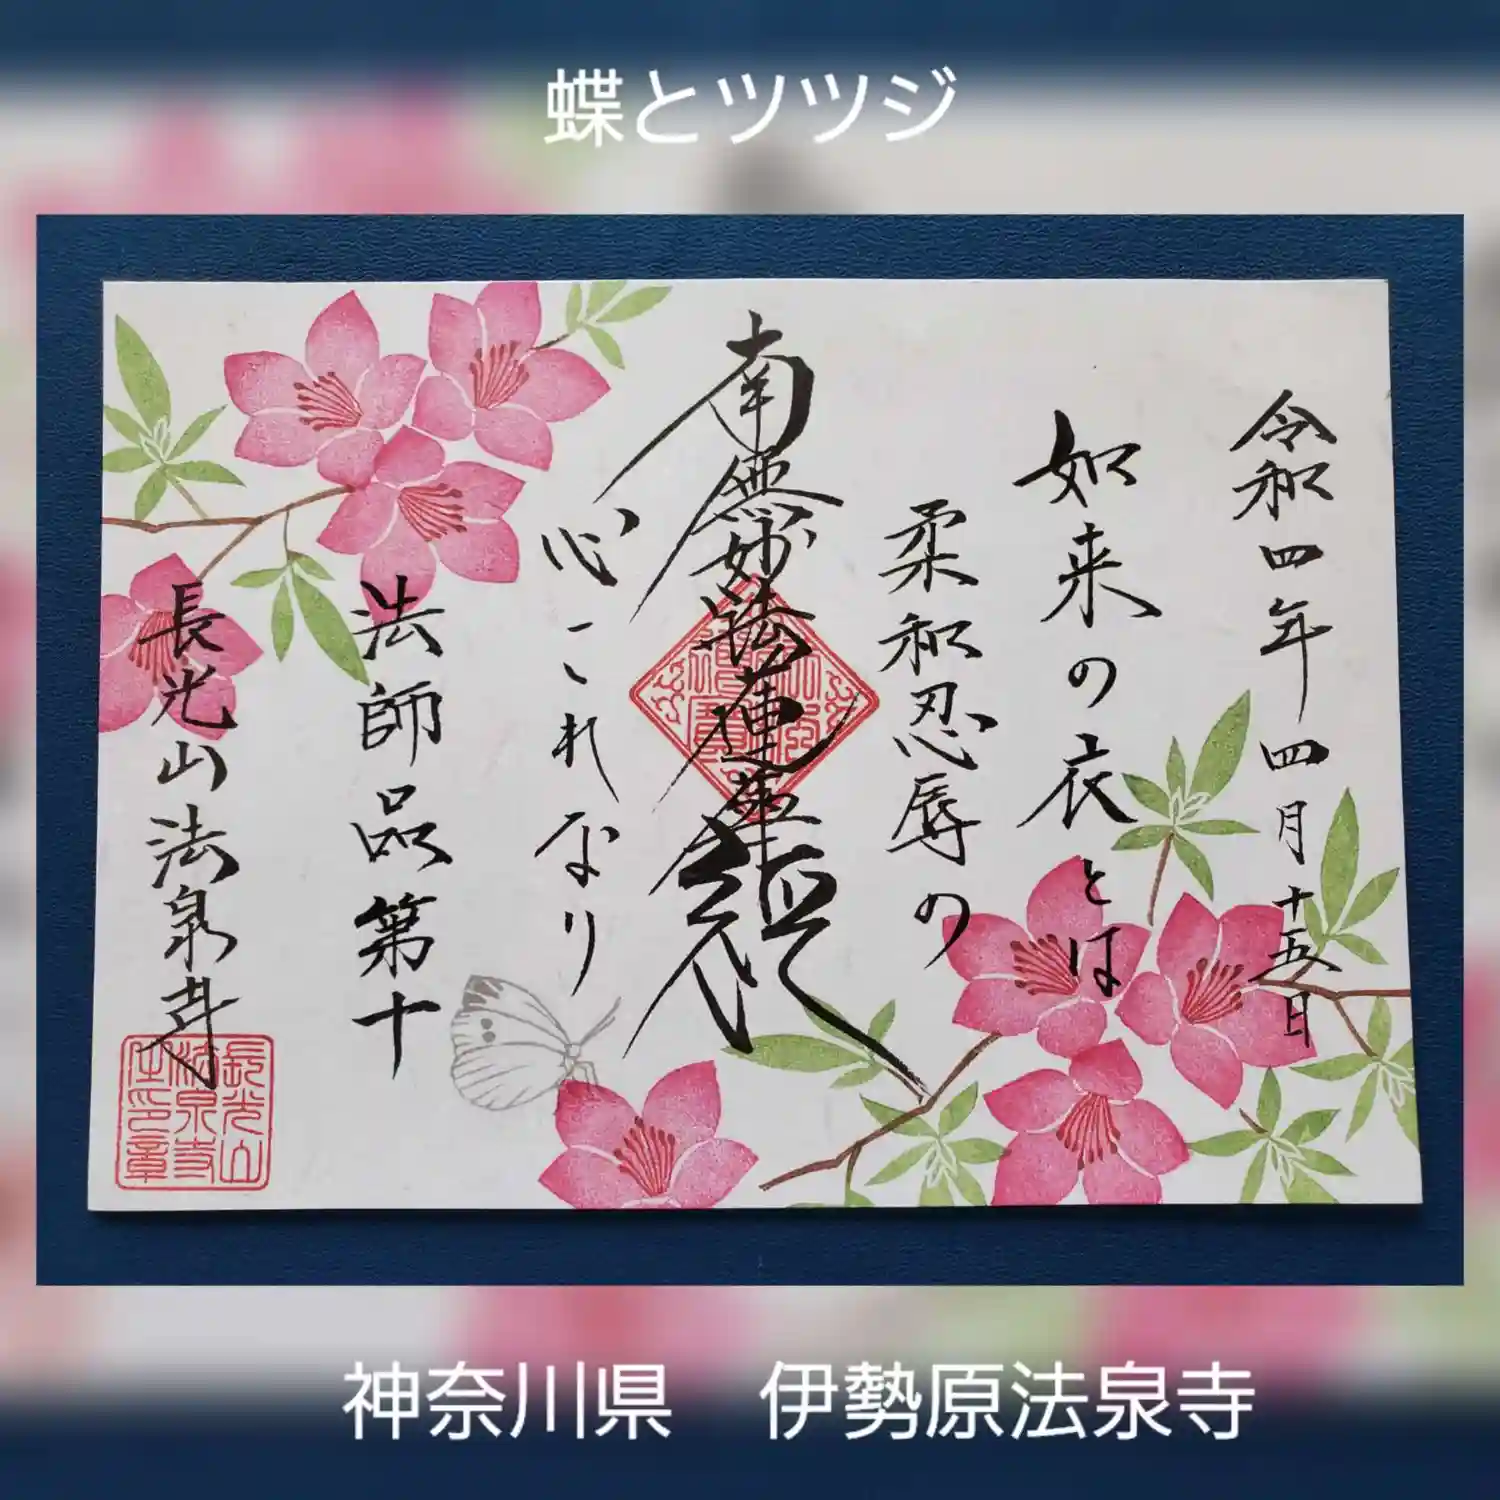 蝶とツツジ
令和四年四月十五日
如来の衣とは
柔和忍辱の
南無妙法蓮華経
心これなり
法師品第十
長光山法泉寺
長光山
法泉寺
之印章
神奈川県　伊勢原法泉寺